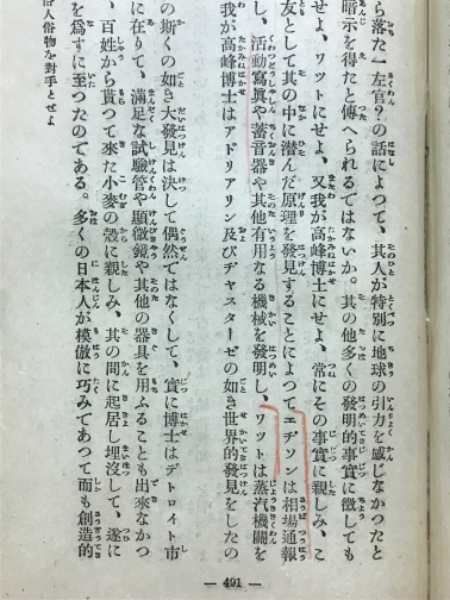 ら落た一左官?の話によつて、其人が特別に地球の引力を感じなかつたと
暗示を得たと傳へられるではないか。其の他多くの發明的事實に徵しても
せよ、ワツトにせよ、又我が高峰博士にせよ、常にその事實に親しみ、こ
友として其の中に潛んだ原理を發見することによつてエヂソンは相場通報
し、活動寫眞や蓄音器や其他有用なる機械を發明し、ワツトは蒸汽機關を
我が高峰博士はアドリアリン及びヂャスターゼの如き世界的發見をしたの
の斯くの如き大發見は決して偶然ではなくして、實に博士はデトロイト市
に在りて、滿足な試驗管や顯微鏡や其他の器具を用ふることも出來なかつ
、百姓から貰つて來た小麥の殼に親しみ、其の間に起居し埋沒して、遂に
を爲すに至つたのである。多くの日本人が模倣に巧みであつて而も創造的
俗人俗物を對手とせよ
— 491 —